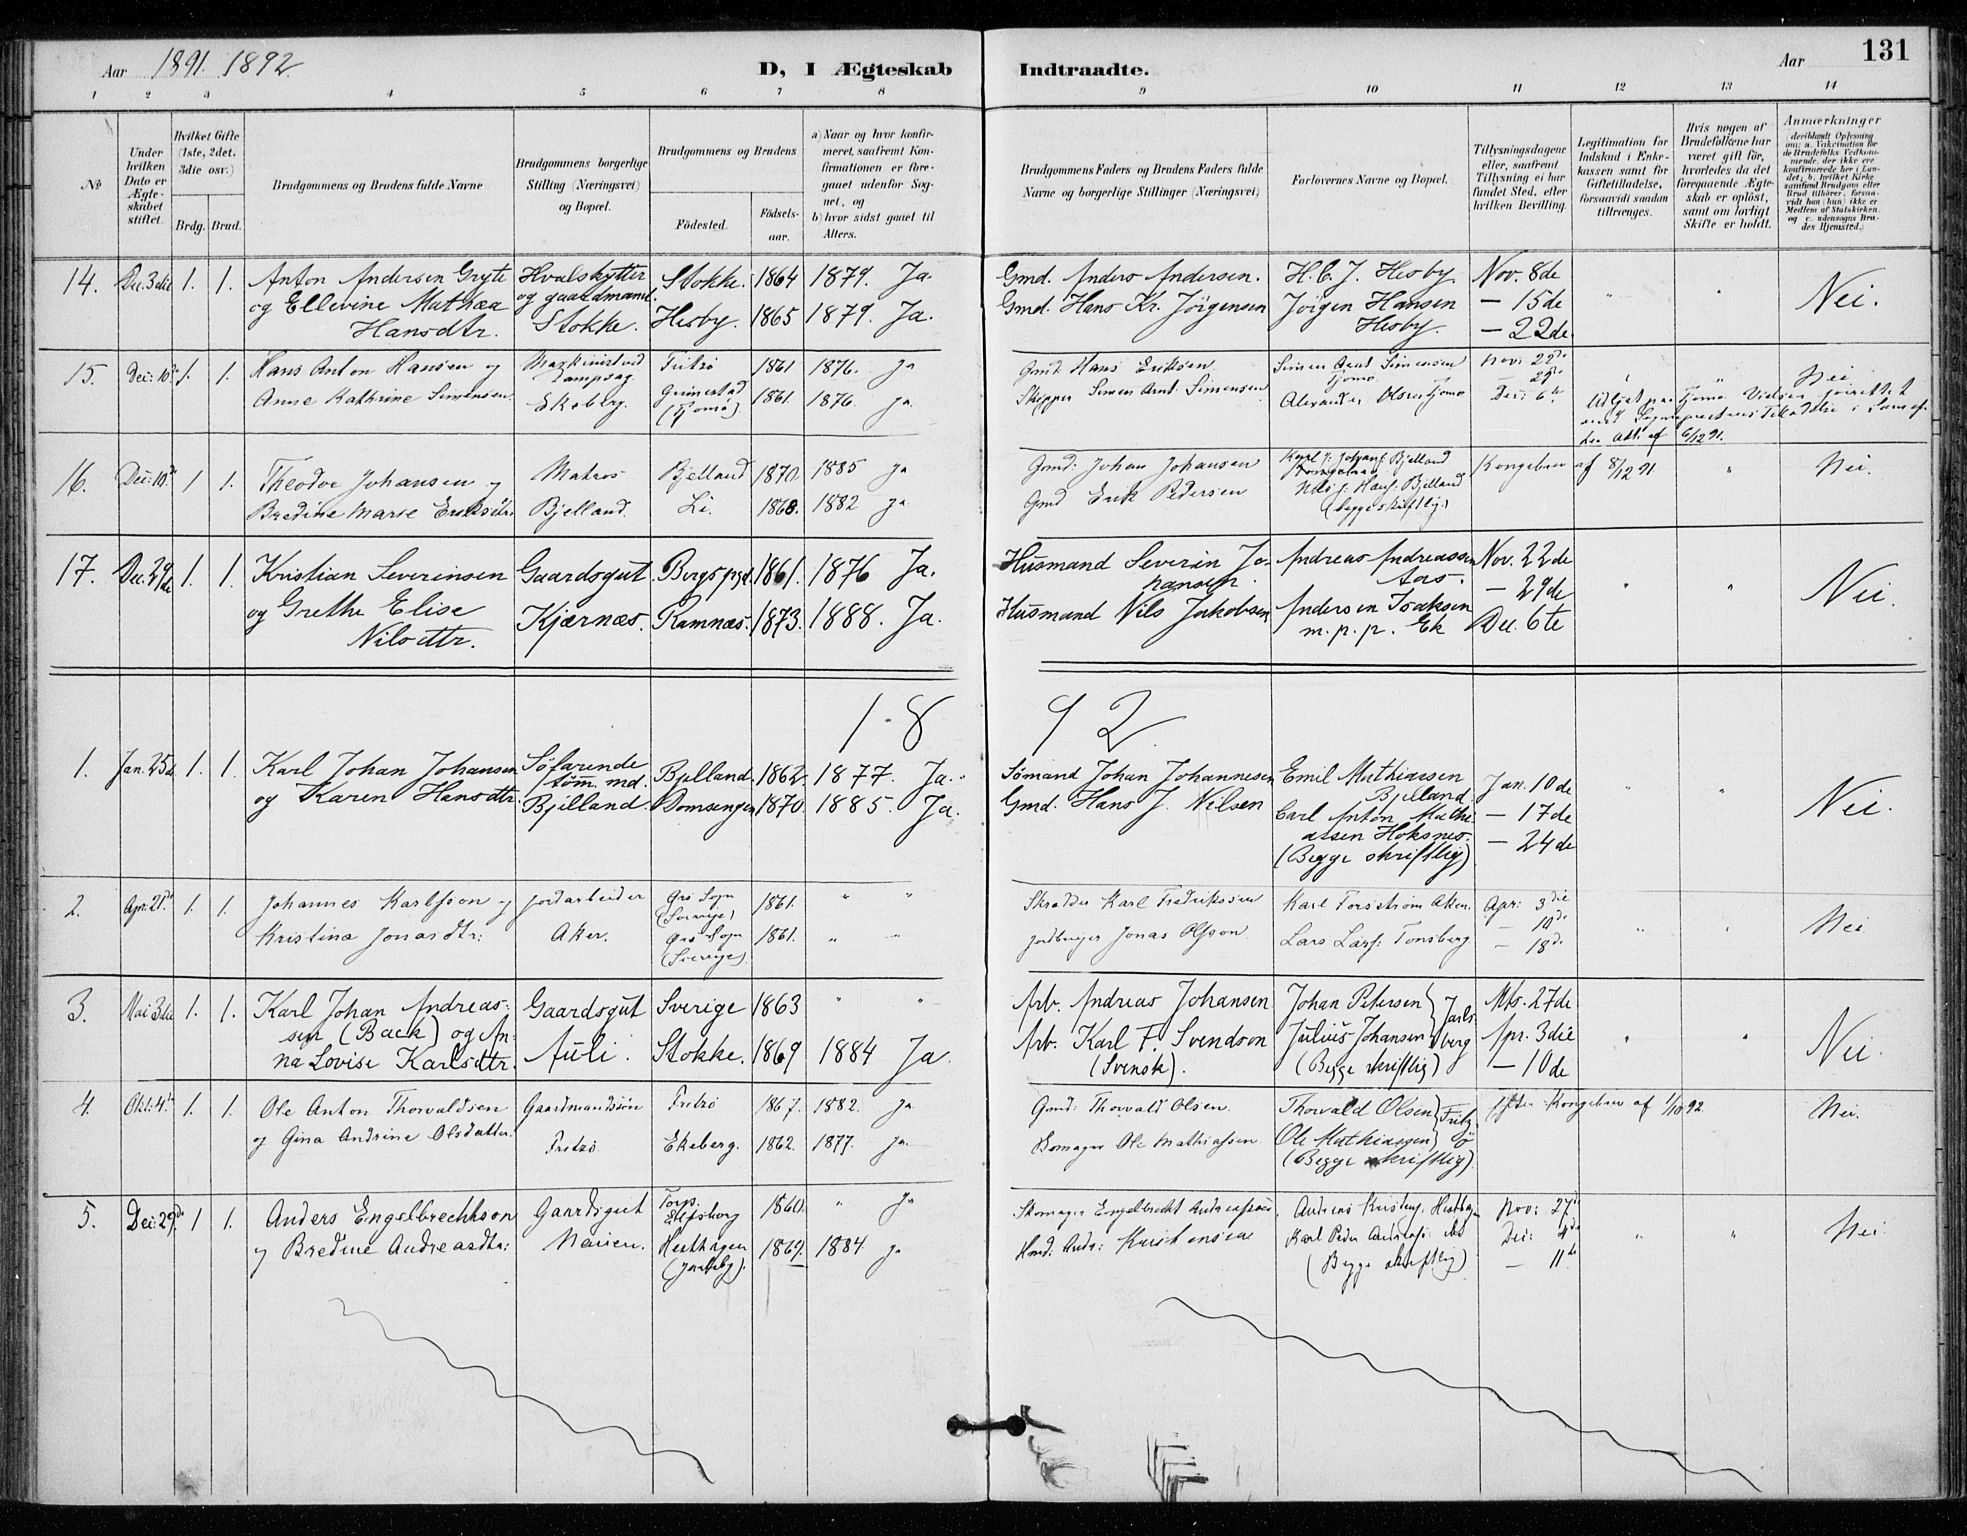 Aar 1891. 1892.
D, I Ægteskab Indtraadte.
Aar 131
1 2 3 4 5 6 7 8 9 10 11 12 13 14
No
Under hvilken Dato er Ægteskabet stiftet.
Hvilket Gifte (1ste, 2det, 3die osv.)
Brdg. Brud.
Brudgommens og Brudens fulde Navne
Brudgommens borgerlige Stilling (Næringsvei) og Bopæl.
Brudgommens og Brudens
Födested. Födselsaar.
a) Naar og hvor konfirmeret, saafremt Konfirmationen er foregaaet udenfor Sognet, og
b) hvor sidst gaaet til Alters.
Brudgommens Faders og Brudens Faders fulde Navne og borgerlige Stillinger (Næringsvei)
Forlovernes Navne og Bopæl.
Tillysningsdagene eller, saafremt Tillysning ei har fundet Sted, efter hvilken Bevilling.
Legitimation for Indskud i Enkekassen samt for Giftetilladelse, forsaavidt saadan tiltrænges.
Hvis nogen af Brudefolkene har været gift för, hvorledes da det foregaaende Ægteskab er oplöst, samt om lovligt Skifte er holdt.
Anmærkninger (deriblandt Oplysning om: a. Vakcination for de Brudefolks Vedkommende, der ikke ere konfirmerede her i Landet; b. hvilket Kirkesamfund Brudgom eller Brud tilhörer, forsaavidt han (hun) ikke er Medlem af Statskirken, og c. udensogns Brudes Hjemsted.)
14. Dec. 3die 1. 1. Anton Andersen Gryte Hvalskytter Stokke. 1864 1879. Ja. Gmd. Anders Andersen. H. C. J. Hesby Nov. 8de
og Ellevine Mathea og gaardmand. Gmd. Hans Kr. Jörgensen Jörgen Hansen — 15de " " Nei.
Hansdtr. Stokke. Hesby. 1865 1879. Ja. Hesby. — 22de
15. Dec: 10de 1. 1. Hans Anton Hansen og Maskinist ved Fritsö 1861 1876. ja Gmd: Hans Eriksen Simen Arnt Simensen Nov: 22de
Anne Kathrine Simensen. Ekeberg. Grimestad (Tjömö) 1861. 1876. ja. Skipper Simen Arnt Simensen Tjömö — 29de " Nei
Alexander Olsen Tjömö Dec: 6te Udlyst paa Tjömö. Vielsen forrettet
med Sognepræstens Tilladelse i
6/12 91.
16. Dec: 10de 1 1. Theodor Johansen og Matros Bjelland 1870. 1885 ja Gmd: Johan Johansen Karl J. Johans. Bjelland Kongebrev af 8/12 91. " Nei.
Bredine Marie Eriksdtr. Bjelland. Li. 1868. 1882 ja Gmd Erik Pedersen Nils J. Hans. Bjelland
(begge skriftlig)
17. Dec. 29de 1. 1. Kristian Severinsen Gaardsgut Bergs prgd. 1861. 1876 Ja. Husmand Severin Jo- Andreas Andreassen Nov. 22de
og Grethe Elise Kjærnæs. Ramnæs. 1873. 1888. Ja. hansen. Aas. — 29de " " Nei.
Nilsdtr. Husmand Nils Jakobsen Andersen Isaksen Dec. 6te
m. p. p. Ek
1892
1. Jan. 25de 1. 1. Karl Johan Johansen Söfarende Bjelland. 1862. 1877. Ja. Sömand Johan Johannesen Emil Mathiassen Jan. 10de
og Karen Hansdtr. tömmd. Bjelland. 1870. 1885. Ja. Gmd. Hans J. Nilsen Bjelland. — 17de " " Nei.
Carl Anton Mathi-
assen Hoksnes. — 24de
(Begge skriftlig)
2. Apr: 21de 1. 1. Johannes Karlsson og Jordarbeider Grö Sogn (Sverige) 1861. " " Skrædder Karl Fredrikssen Karl Forsström Aker. Apr: 3die
Kristina Jonasdtr: Aker. Grö Sogn (Sverige). 1861. " " Jordbruger Jonas Olsson Lars Lars: Tönsberg — 10de " " Nei
— 18de
3. Mai 3die 1. 1. Karl Johan Andreas- Gaardsgut Sverige 1863 " " Arb. Andreas Johansen Johan Petersen Jarls- Mts. 27de
sen (Back) og An- Arb. Karl F. Svendson Julius Johansen berg Apr. 3die " " Nei.
na Lovise Karlsdtr. Auli. Stokke. 1869 1884 Ja. (Svensk). (Begge skriftlig) — 10de
4. Okt: 4de 1. 1. Ole Anton Thorvaldsen Gaardmandssön Fritsö 1867. 1882. ja Gmd: Thorvald Olsen. Thorvald Olsen Fritz- Efter Kongebrev af 1/10 92. Nei.
og Gina Andrine Olsdatter. Fritzö Ekeberg. 1862. 1877. ja. Skomager Ole Mathiassen Ole Mathiassen ö
(Begge skriftlig).
5. Dec: 29de 1 1. Anders Engelbrechtson Gaardsgut Torp. Elfsborg 1860. " ja Skomager Engelbrecht Andreas Kristens. Hesthagen Nov: 27de
og Bredine Andreasdtr: Hesthagen (Jarlsbg). 1869. 1884. ja Karl Peder Andreass: ibd Dec: 4de " " Nei
(Begge skriftlig) — 11te